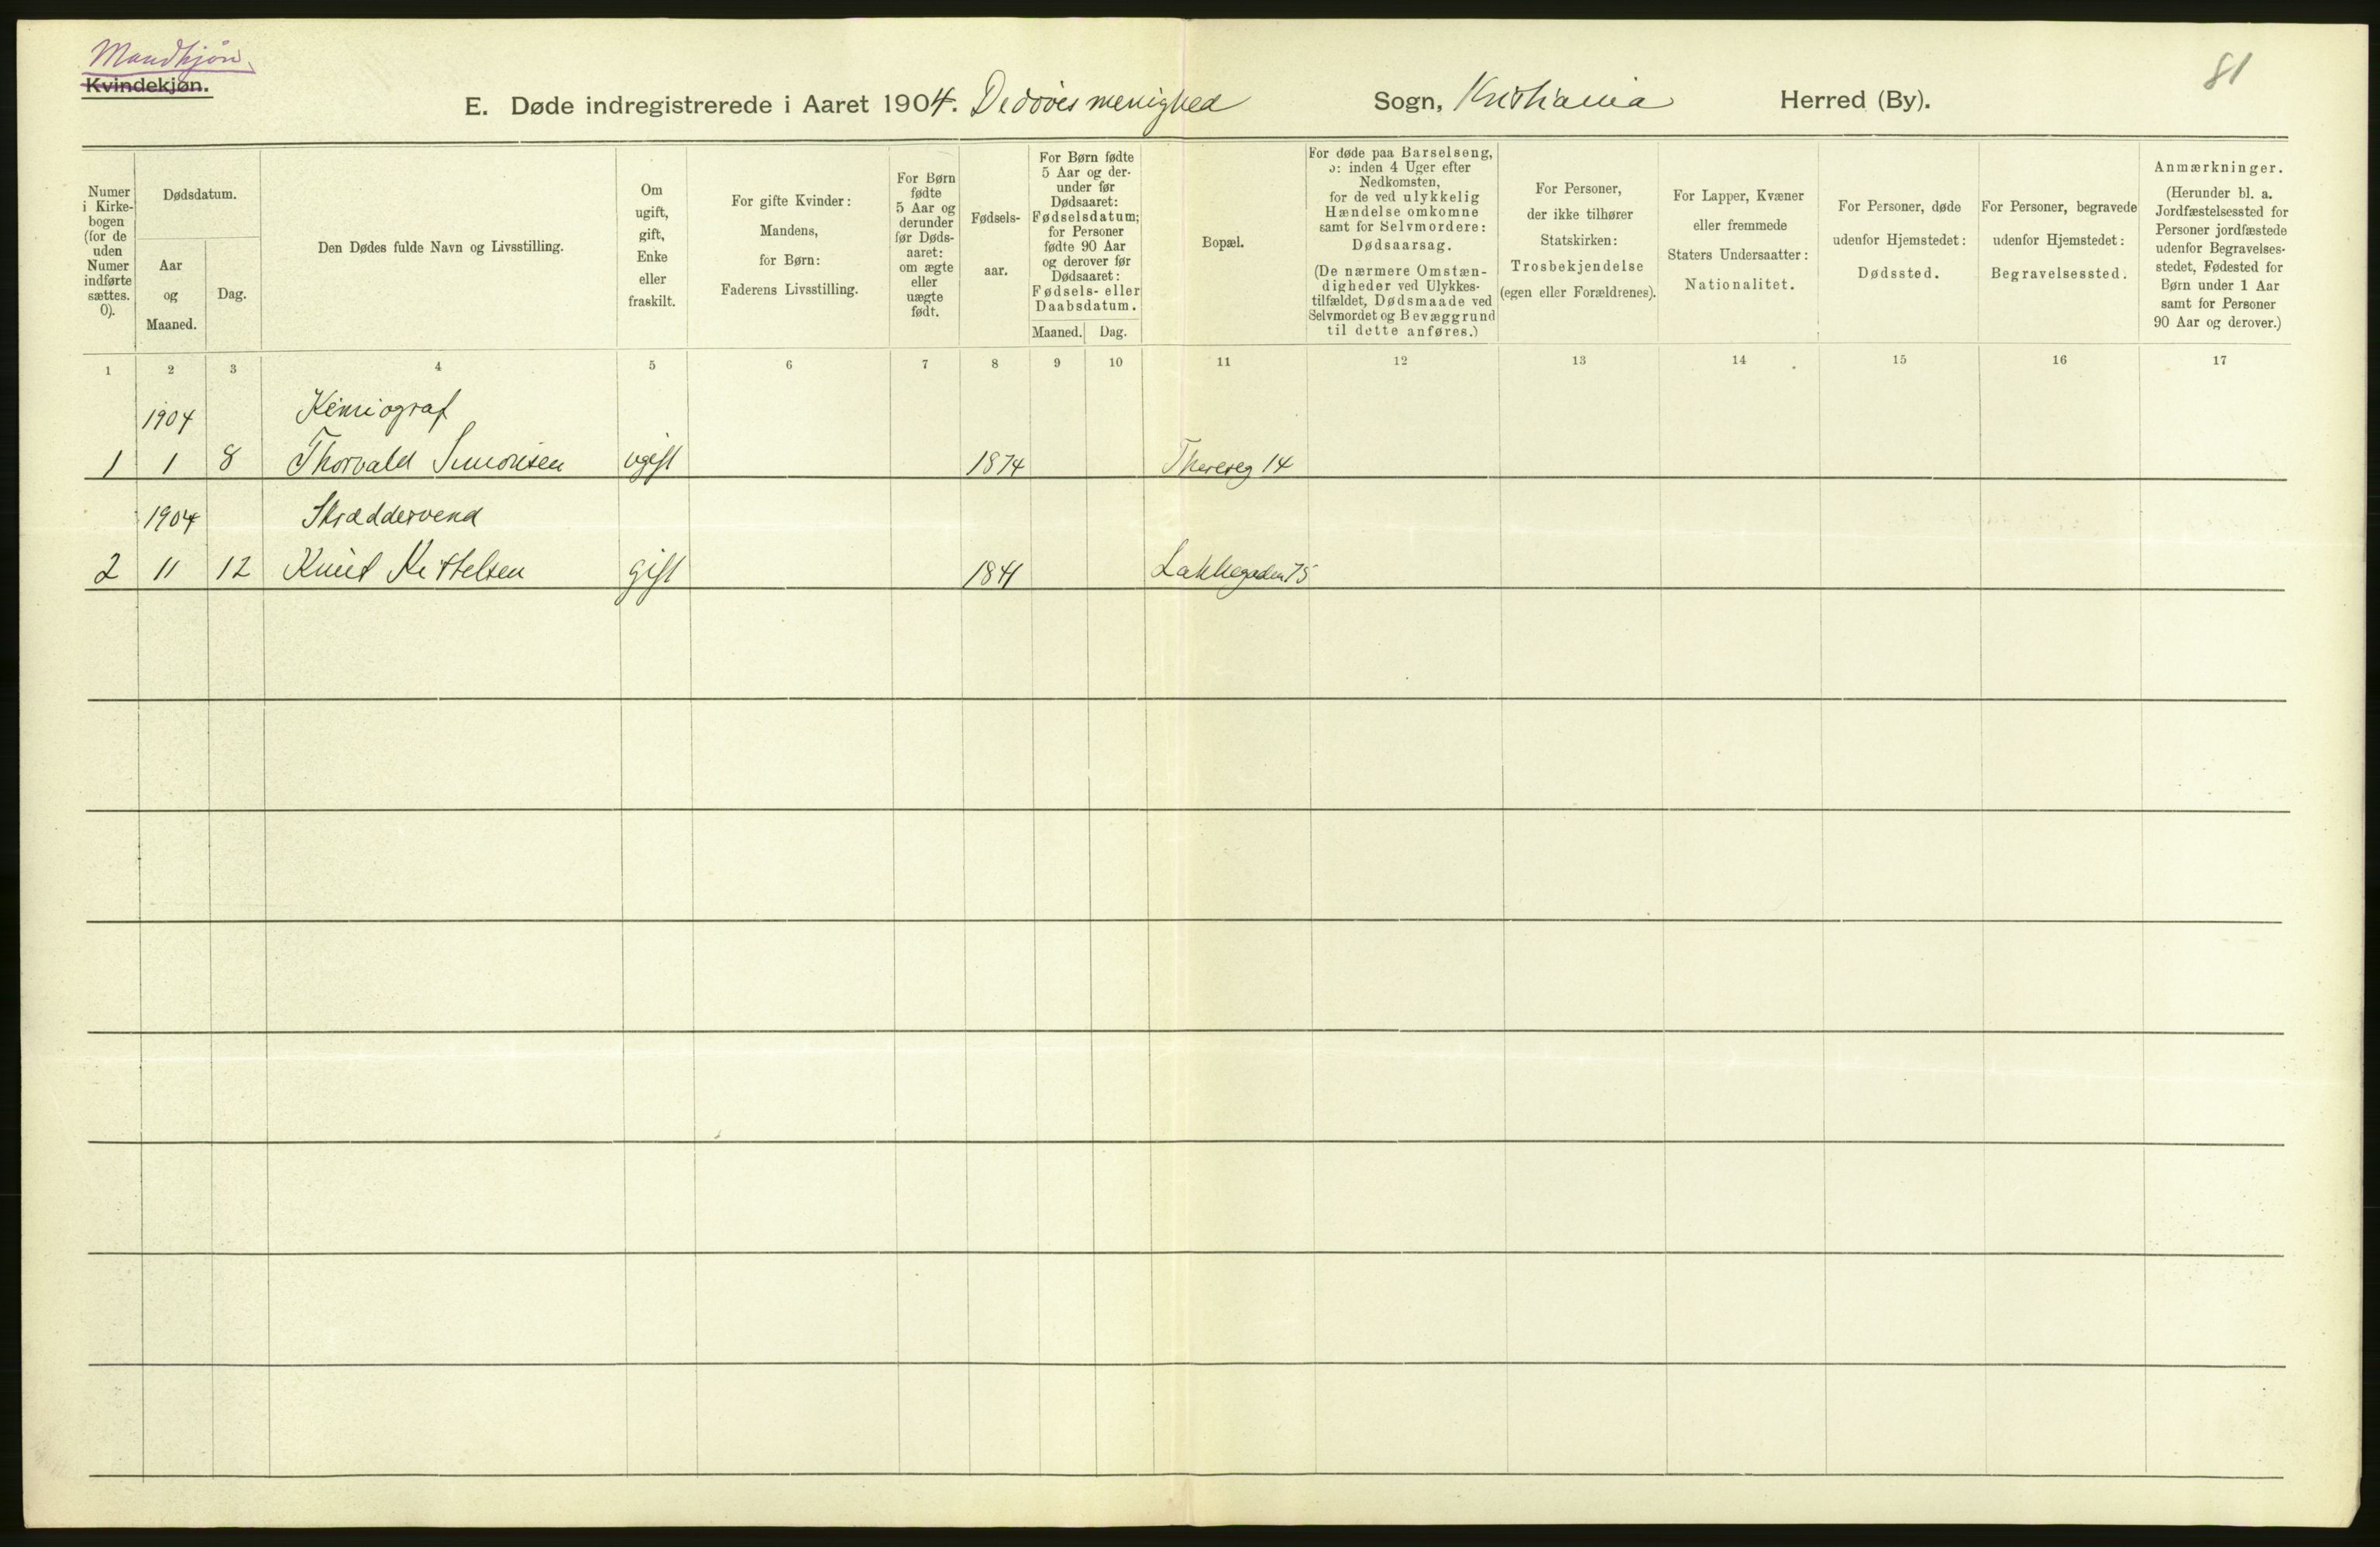 Mandkjøn.
Kvindekjøn.
81
E. Døde indregistrerede i Aaret 1904. Dedøves menighed Sogn, Kristiania Herred (By).
Numer
i Kirke-
bogen
(for de
uden
Numer
indførte
sættes.
0).
Dødsdatum.
Aar
og
Maaned.
Dag.
Den Dødes fulde Navn og Livsstilling.
Om
ugift,
gift,
Enke
eller
fraskilt.
For gifte Kvinder:
Mandens,
for Børn:
Faderens Livsstilling.
For Børn
fødte
5 Aar og
derunder
før Døds-
aaret:
om ægte
eller
uægte
født.
Fødsels-
aar.
For Børn fødte
5 Aar og der-
under før
Dødsaaret:
Fødselsdatum;
for Personer
fødte 90 Aar
og derover før
Dødsaaret:
Fødsels- eller
Daabsdatum.
Maaned. Dag.
Bopæl.
For døde paa Barselseng,
ɔ: inden 4 Uger efter
Nedkomsten,
for de ved ulykkelig
Hændelse omkomne
samt for Selvmordere:
Dødsaarsag.
(De nærmere Omstæn-
digheder ved Ulykkes-
tilfældet, Dødsmaade ved
Selvmordet og Bevæggrund
til dette anføres.)
For Personer,
der ikke tilhører
Statskirken:
Trosbekjendelse
(egen eller Forældrenes).
For Lapper, Kvæner
eller fremmede
Staters Undersaatter:
Nationalitet.
For Personer, døde
udenfor Hjemstedet:
Dødssted.
For Personer, begravede
udenfor Hjemstedet:
Begravelsessted.
Anmærkninger.
(Herunder bl. a.
Jordfæstelsessted for
Personer jordfæstede
udenfor Begravelses-
stedet, Fødested for
Børn under 1 Aar
samt for Personer
90 Aar og derover.)
1 2 3 4 5 6 7 8 9 10 11 12 13 14 15 16 17
1904 Kemiograf
1 1 8 Thorvald Simonsen ugift 1874 14
1904 Skræddersvend
2 11 12 Knut Kittelsen gift 1841 Lakkegaden 75